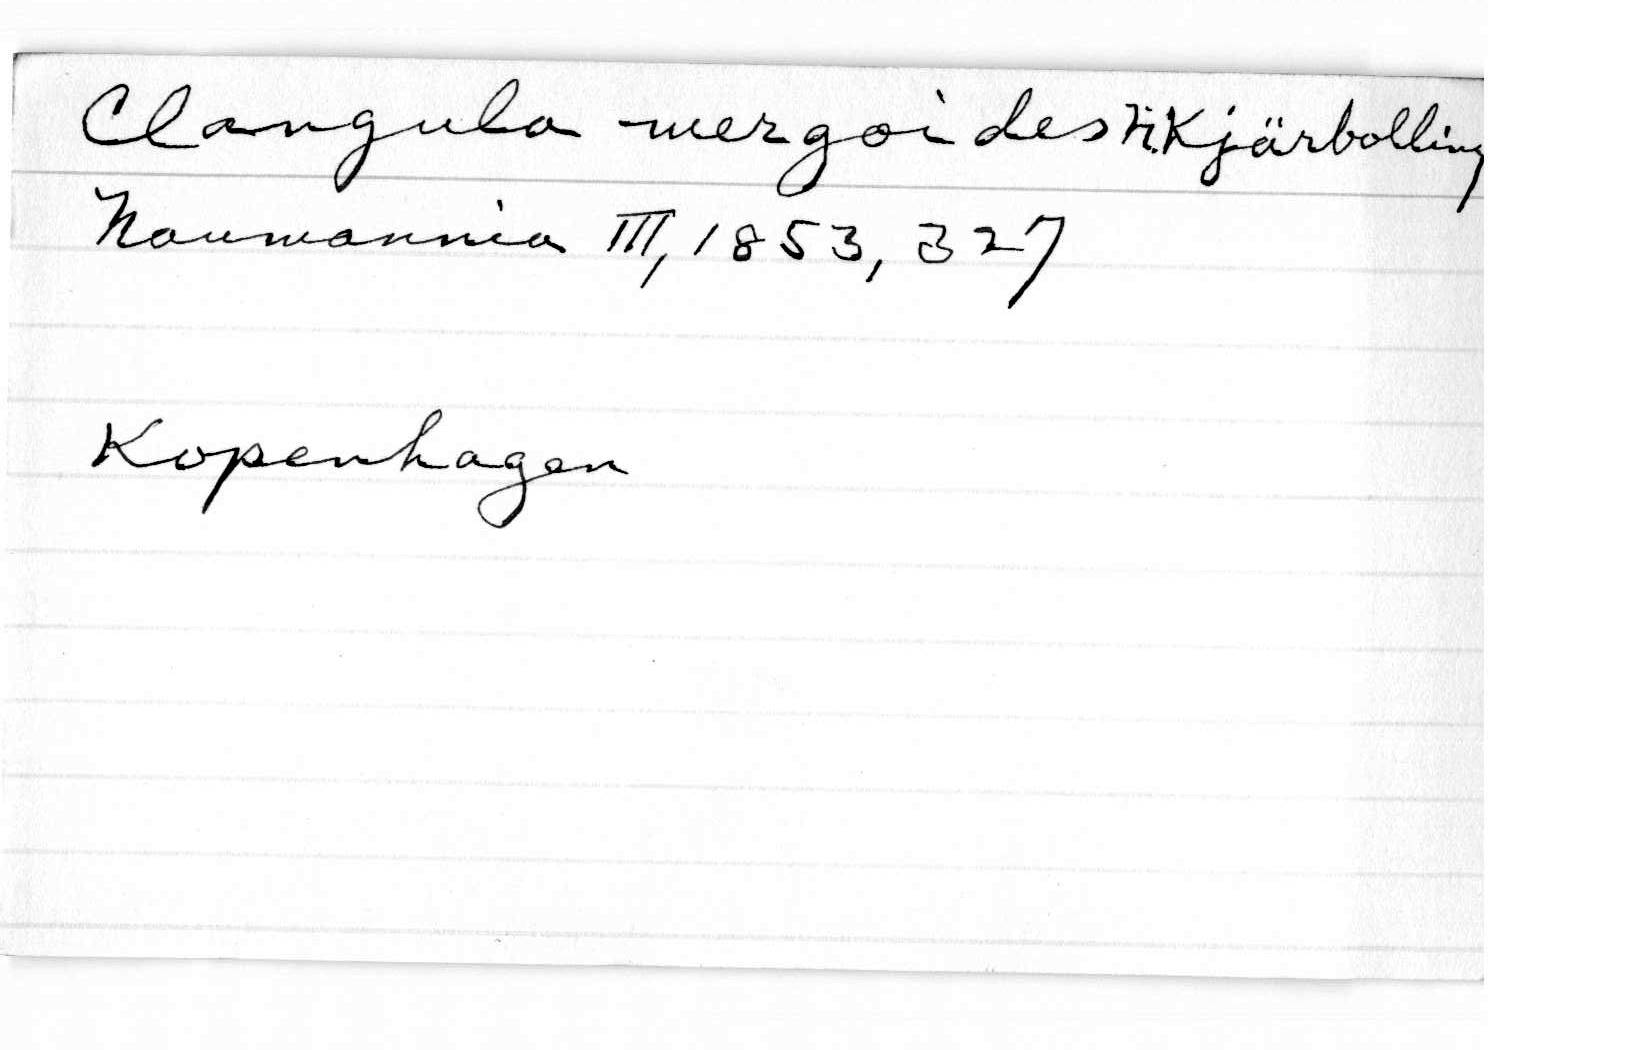 Clangula mergoides N. Kjärbolling
Naumannia III, 1853, 327
Kopenhagen